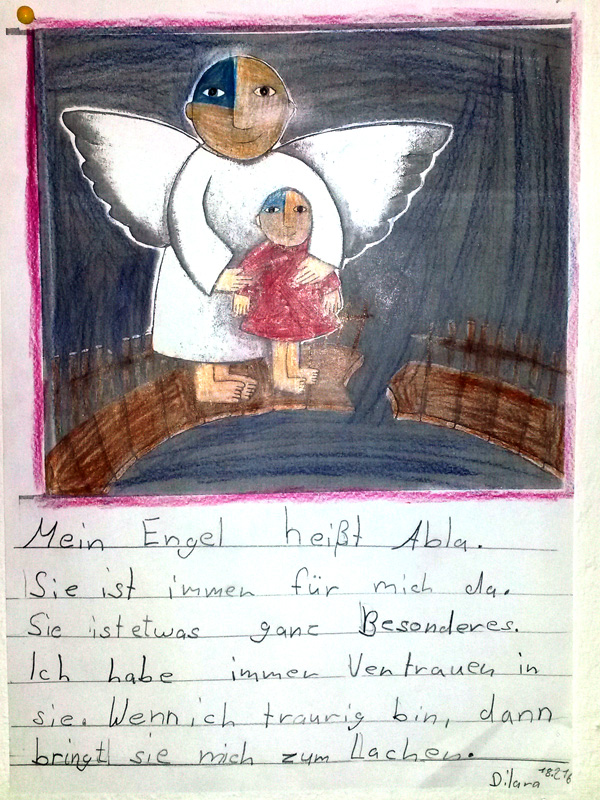 Mein Engel heißt Abla.
Sie ist immer für mich da.
Sie ist etwas ganz Besonderes.
Ich habe immer Vertrauen in
sie. Wenn ich traurig bin, dann
bringt sie mich zum Lachen.
Dilara 18.2.16